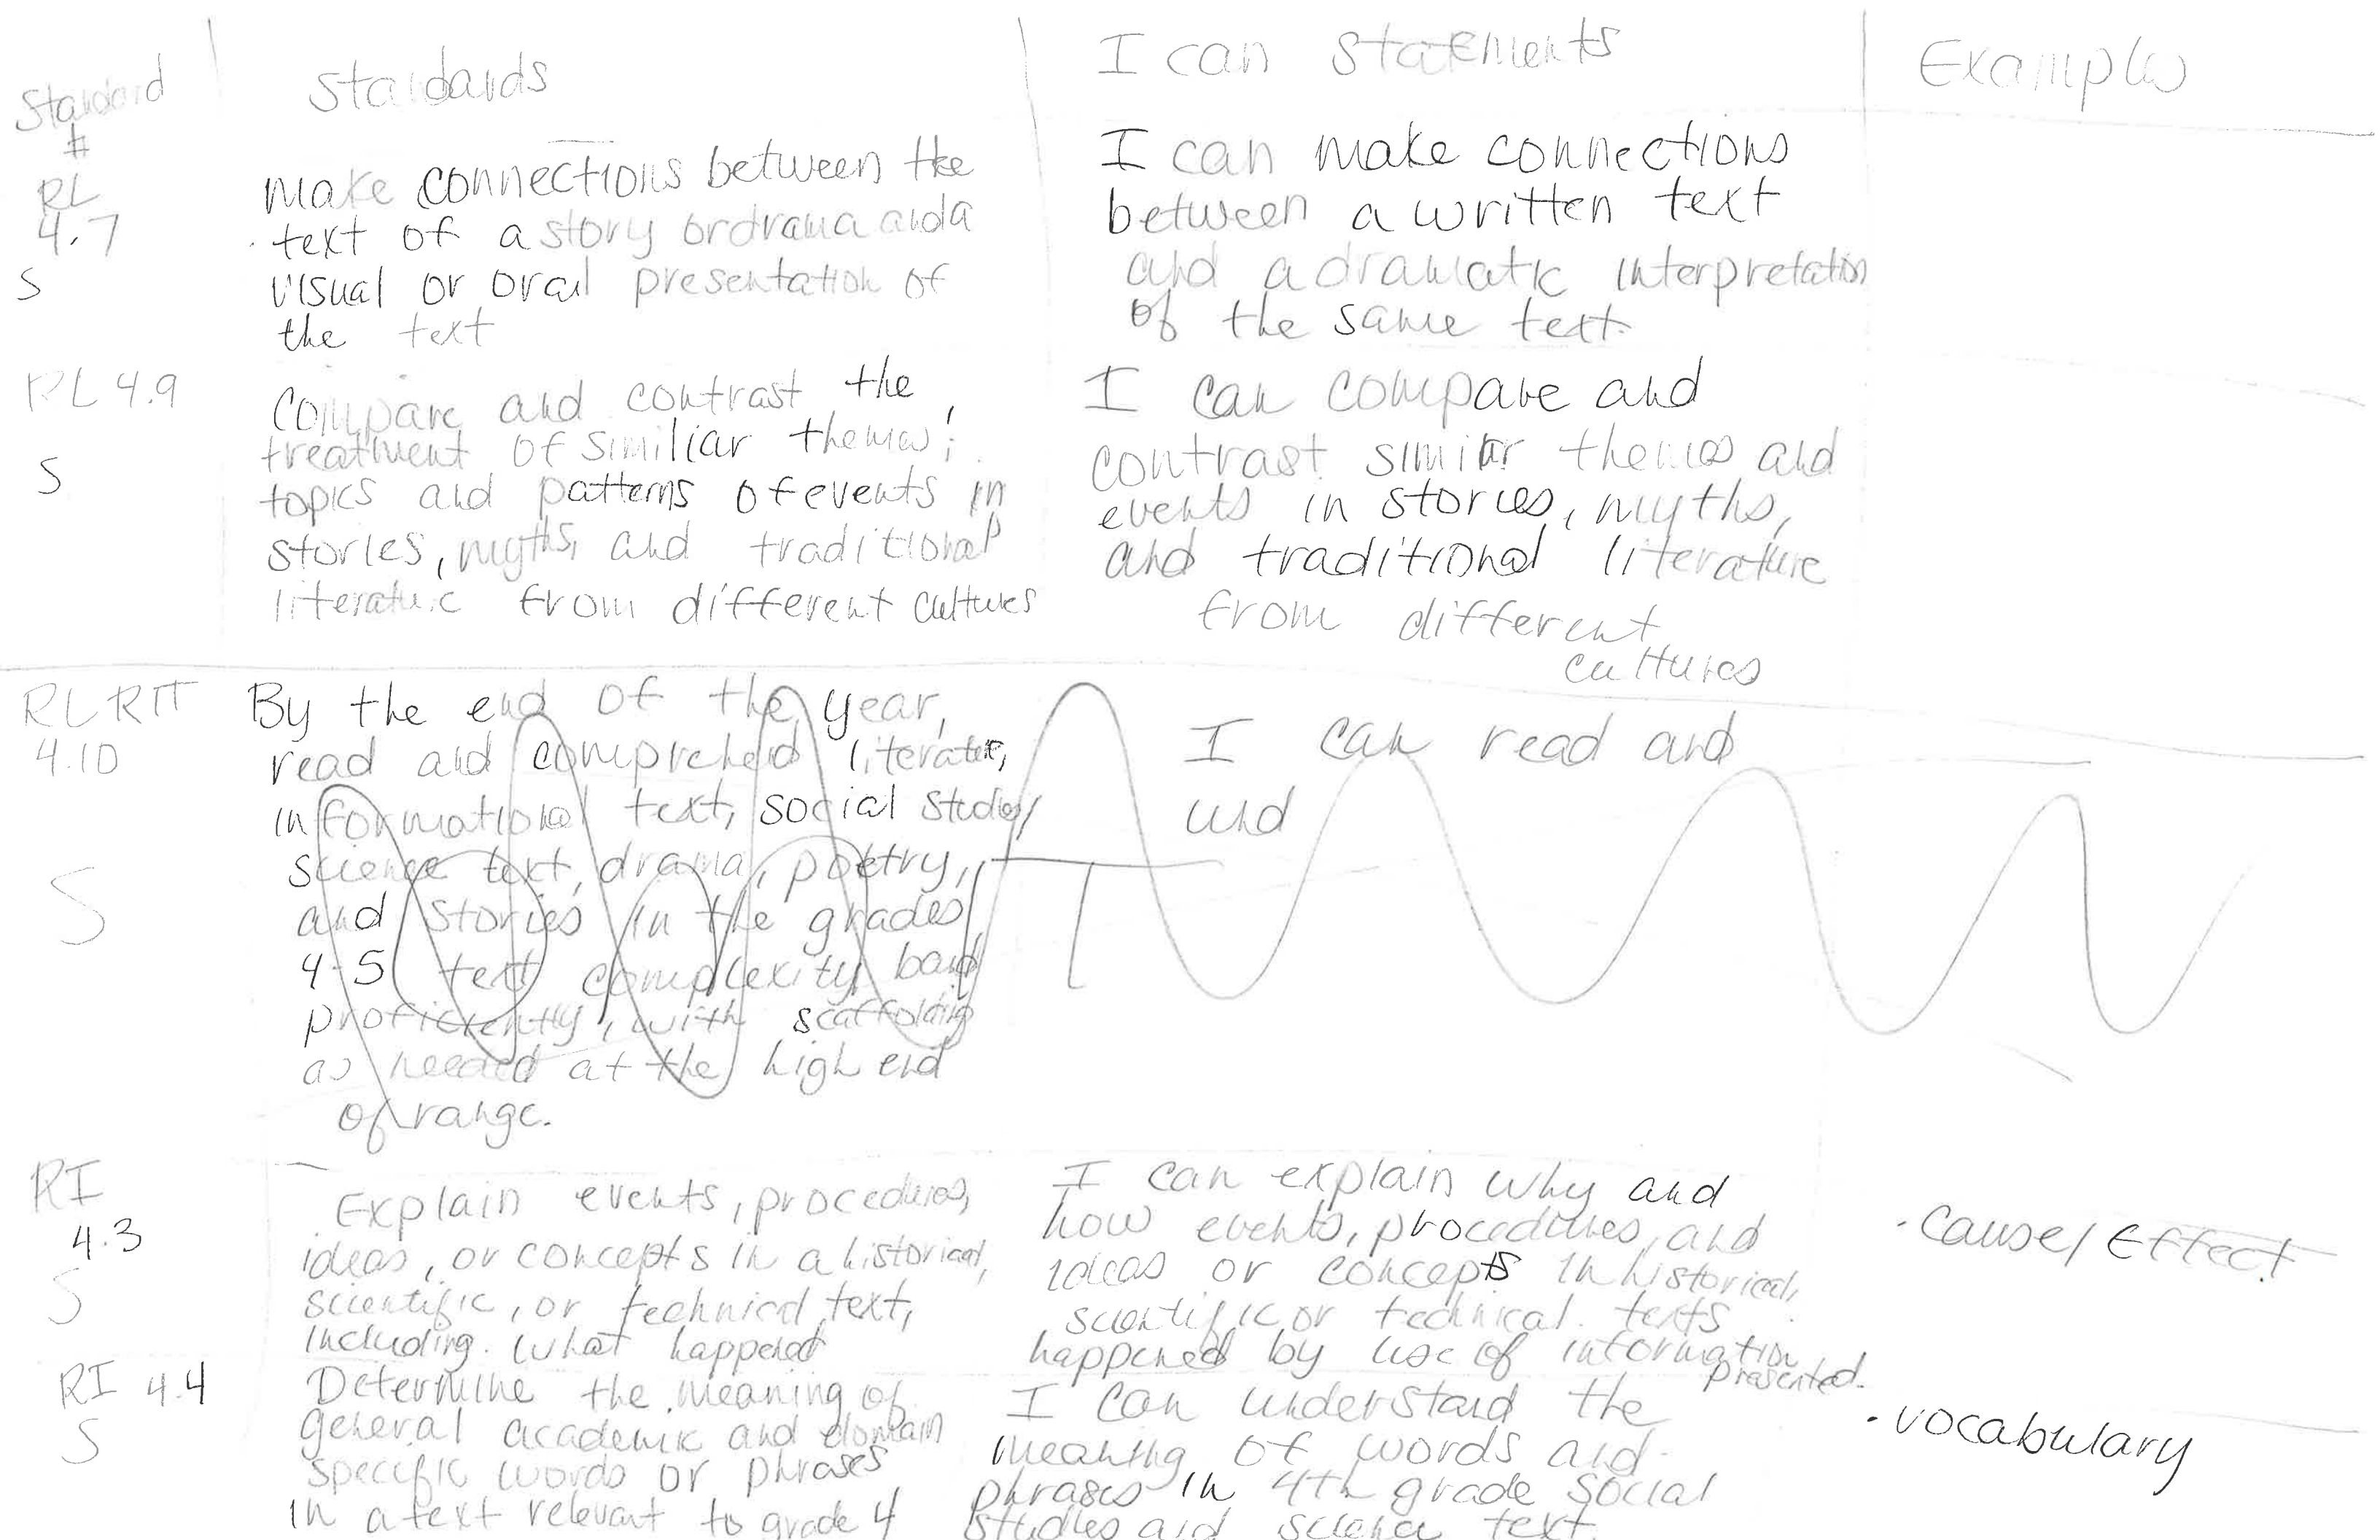 Standard
#
Standards
I can statements
Examples
RL
4.7
S
make connections between the
text of a story or drama and a
visual or oral presentation of
the text
I can make connections
between a written text
and a dramatic interpretation
of the same text.
RL 4.9
S
Compare and contrast the
treatment of similiar themes,
topics and patterns of events in
stories, myths, and traditional
literature from different cultures
I can compare and
contrast similar themes and
events in stories, myths,
and traditional literature
from different
cultures
RL RIT
4.10
S
By the end of the year,
read and comprehend literature,
informational text, social studies,
science text, drama, poetry,
and stories in the grades
4-5 text complexity band
proficiently, with scaffolding
as needed at the high end
of range.
I can read and
und
RI
4.3
S
Explain events, procedures,
ideas, or concepts in a historical,
scientific, or technical text,
including what happened
I can explain why and
how events, procedures, and
ideas or concepts in historical,
scientific or technical texts
happened by use of information
presented.
• Cause/Effect
RI 4.4
S
Determine the meaning of
general academic and domain
specific words or phrases
in a text relevant to grade 4
I can understand the
meaning of words and
phrases in 4th grade social
studies and science text.
• Vocabulary